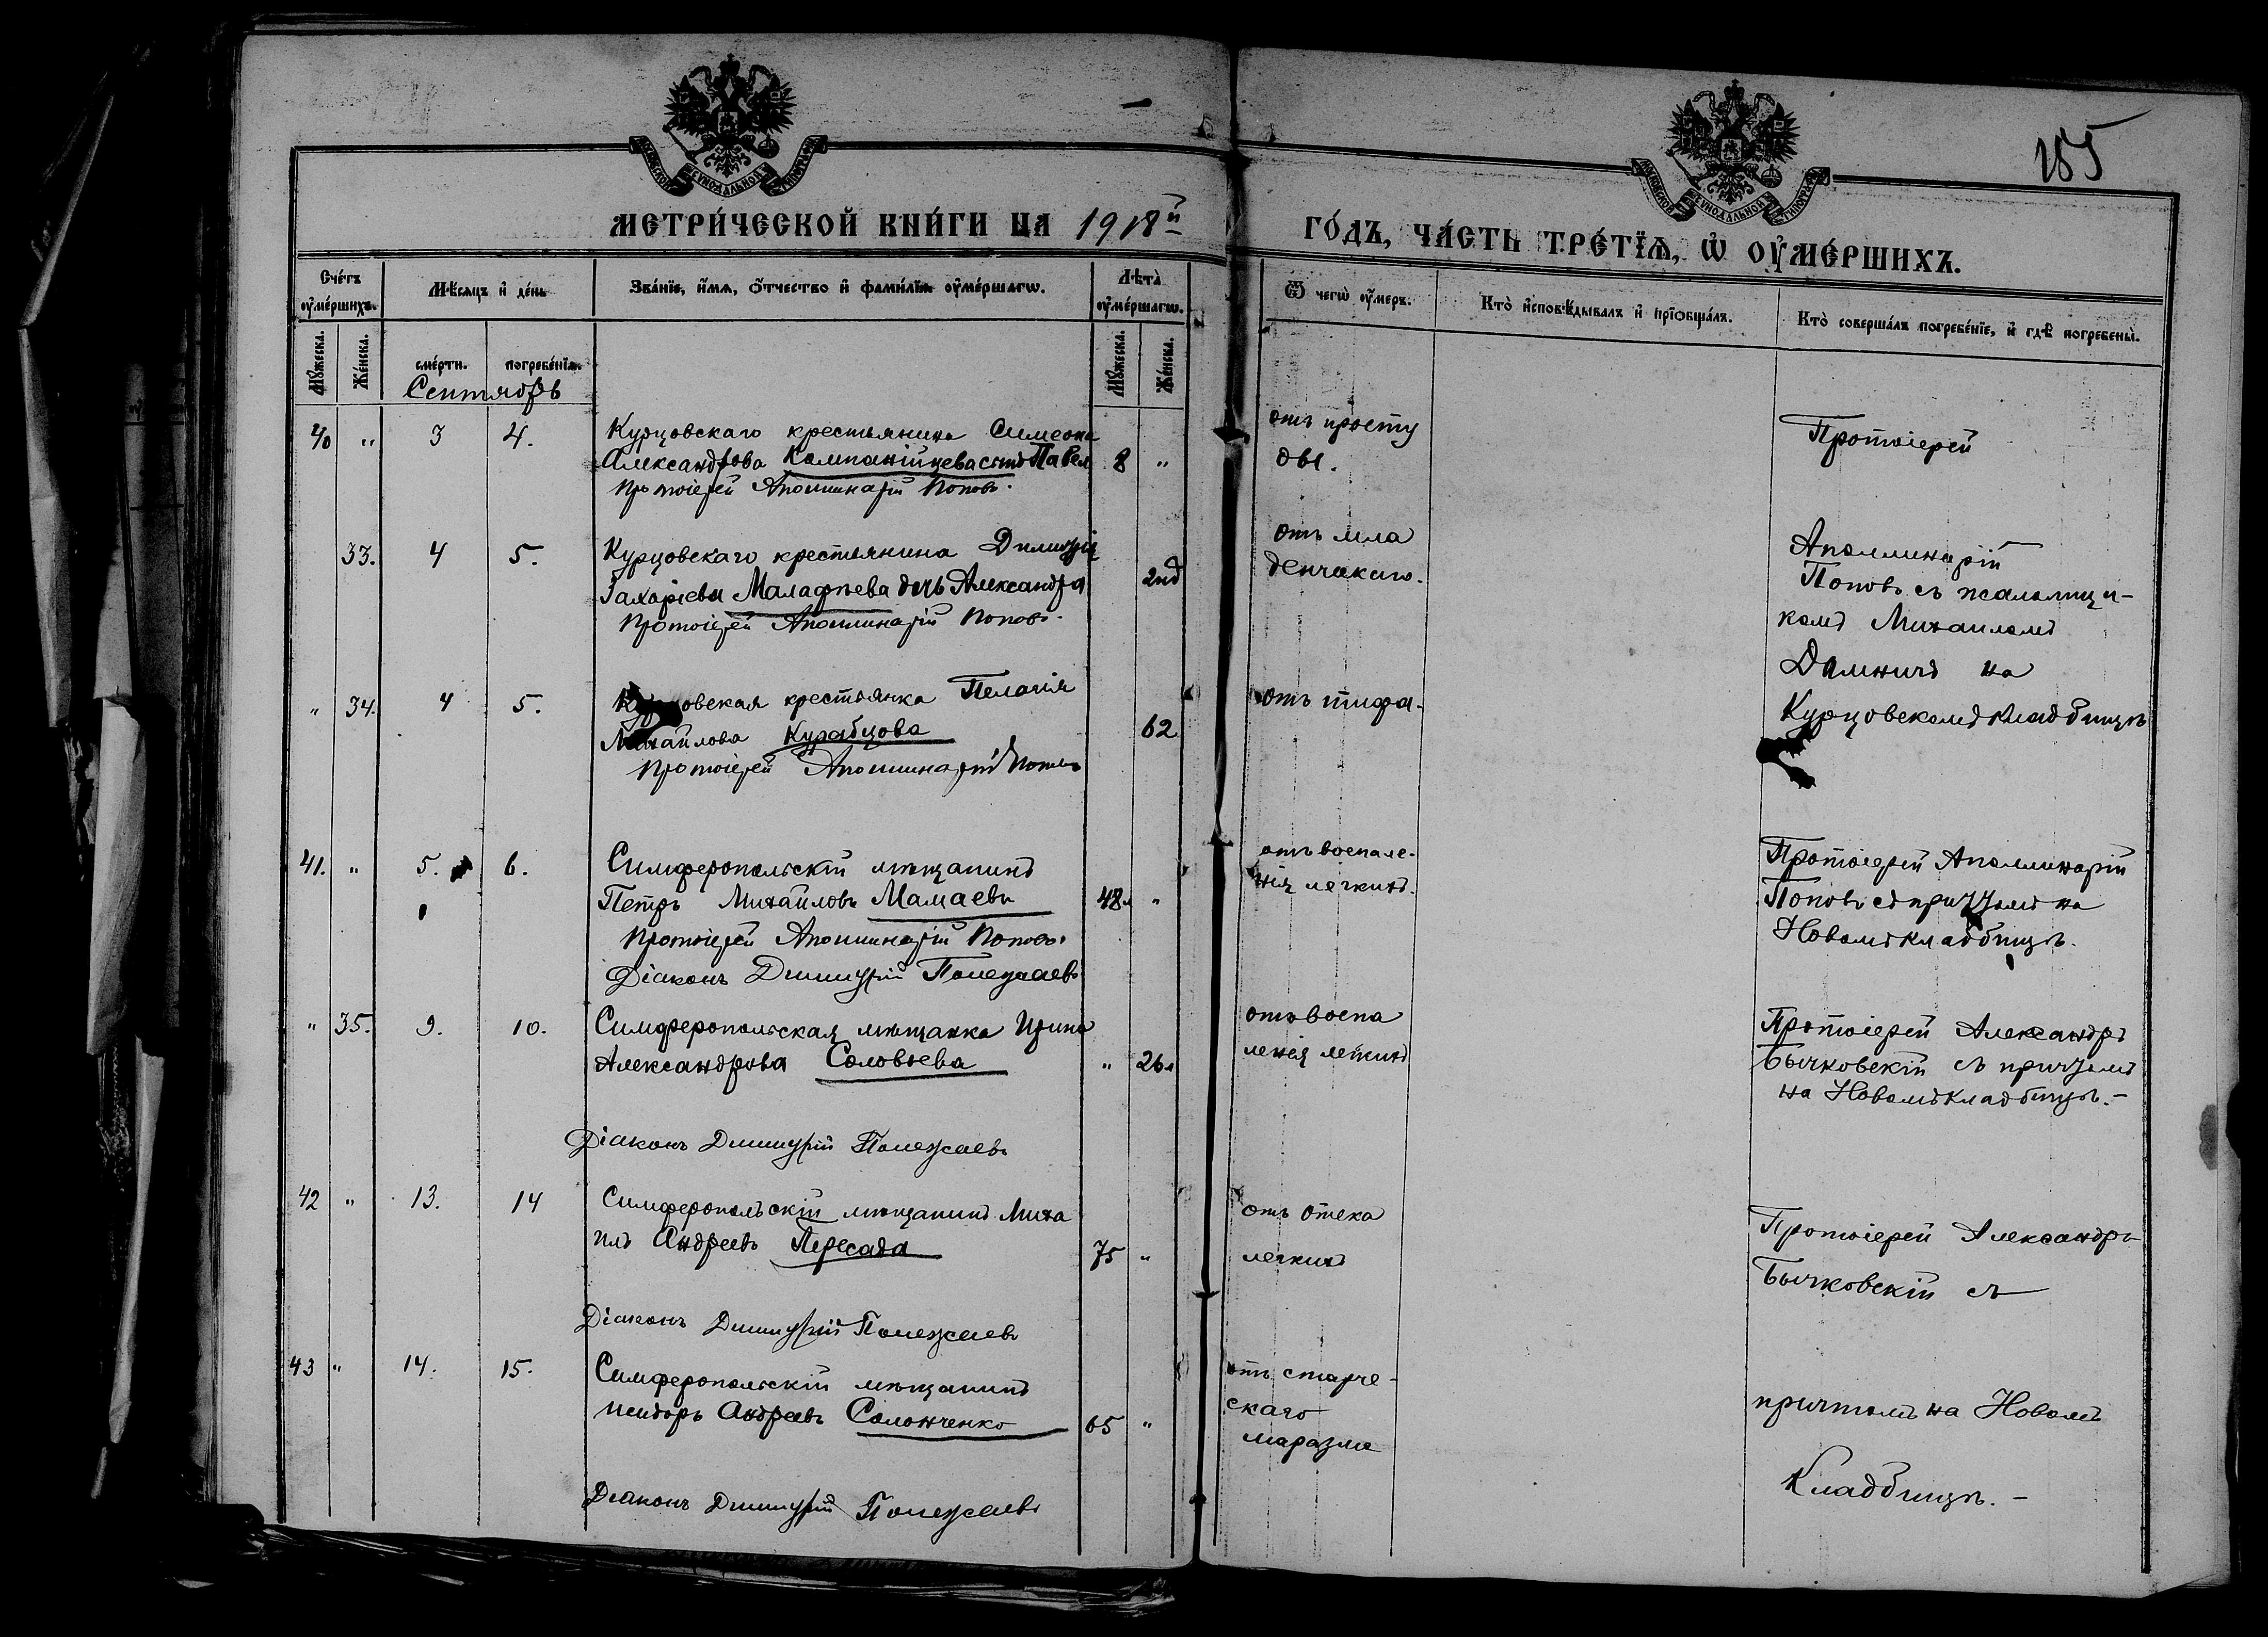 185
МЕТРИ́ЧЕСКОЙ КНИ́ГИ НА 1918й ГО́ДЪ, ЧА́СТЬ ТРЕ́ТІѦ, Ѡ ОУМЕ́РШИХЪ.
Сче́тъ оуме́ршихъ.
Мѣ́сяцъ и де́нь
Зва́ніе, и́мя, о́тчество и фами́лія оуме́ршагѡ.
Лѣта̀ оуме́ршагѡ.
Ѿ чегѡ̀ оу́меръ.
Кто̀ исповѣ́дывалъ и пріобща́лъ.
Кто̀ соверша́лъ погребе́ніе, и гдѣ̀ погребены̀.
Му́жеска.
Же́нска.
сме́рти.
погребе́нія.
Му́жеска.
Же́нска.
Сентябрь
40 " 3 4.
Курцовскаго крестьянина Симеона
Александрова Компанійцева сынъ Павел 8 "
Протоіерей Аполлинарій Поповъ.
отъ просту
ды.
Протоіерей
33. 4 5.
Курцовскаго крестьянина Димитрія
Захаріева Малафѣева дочь Александра 2нд
Протоіерей Аполлинарій Поповъ.
отъ мла
денчекаго.
Аполлинарій
Поповъ съ псаломщи-
комъ Михаиломъ
" 34. 4 5.
Курцовская крестьянка Пелагія
Михайлова Курабцова 62
Протоіерей Аполлинарій Поповъ
отъ тифа.
на
Курцовскомъ кладбищѣ
41. " 5. 6.
Симферопольскій мѣщанинъ
Петръ Михайловъ Мамаевъ 48л "
Протоіерей Аполлинарій Поповъ.
Діаконъ Димитрій Полежаевъ
отъ воспале-
нія легкихъ.
Протоіерей Аполлинарій
Поповъ съ причтомъ на
Новомъ кладбищѣ.
" 35. 9. 10.
Симферопольская мѣщанка Ирина
Александрова Соловьева " 26л
Діаконъ Димитрій Полежаевъ
отъ воспа
ленія легкихъ
Протоіерей Александръ
Бычковскій съ причтомъ
на Новомъ кладбищѣ.-
42 " 13. 14
Симферопольскій мѣщанинъ Миха
илъ Андреевъ Пересада 75 "
Діаконъ Димитрій Полежаевъ
отъ отека
легкихъ
Протоіерей Александръ
Бычковскій съ
43 " 14. 15.
Симферопольскій мѣщанинъ
Исидоръ Андреевъ Солонченко 65 "
Діаконъ Димитрій Полежаевъ
отъ старче-
скаго
маразма
причтомъ на Новомъ
Кладбищѣ.-